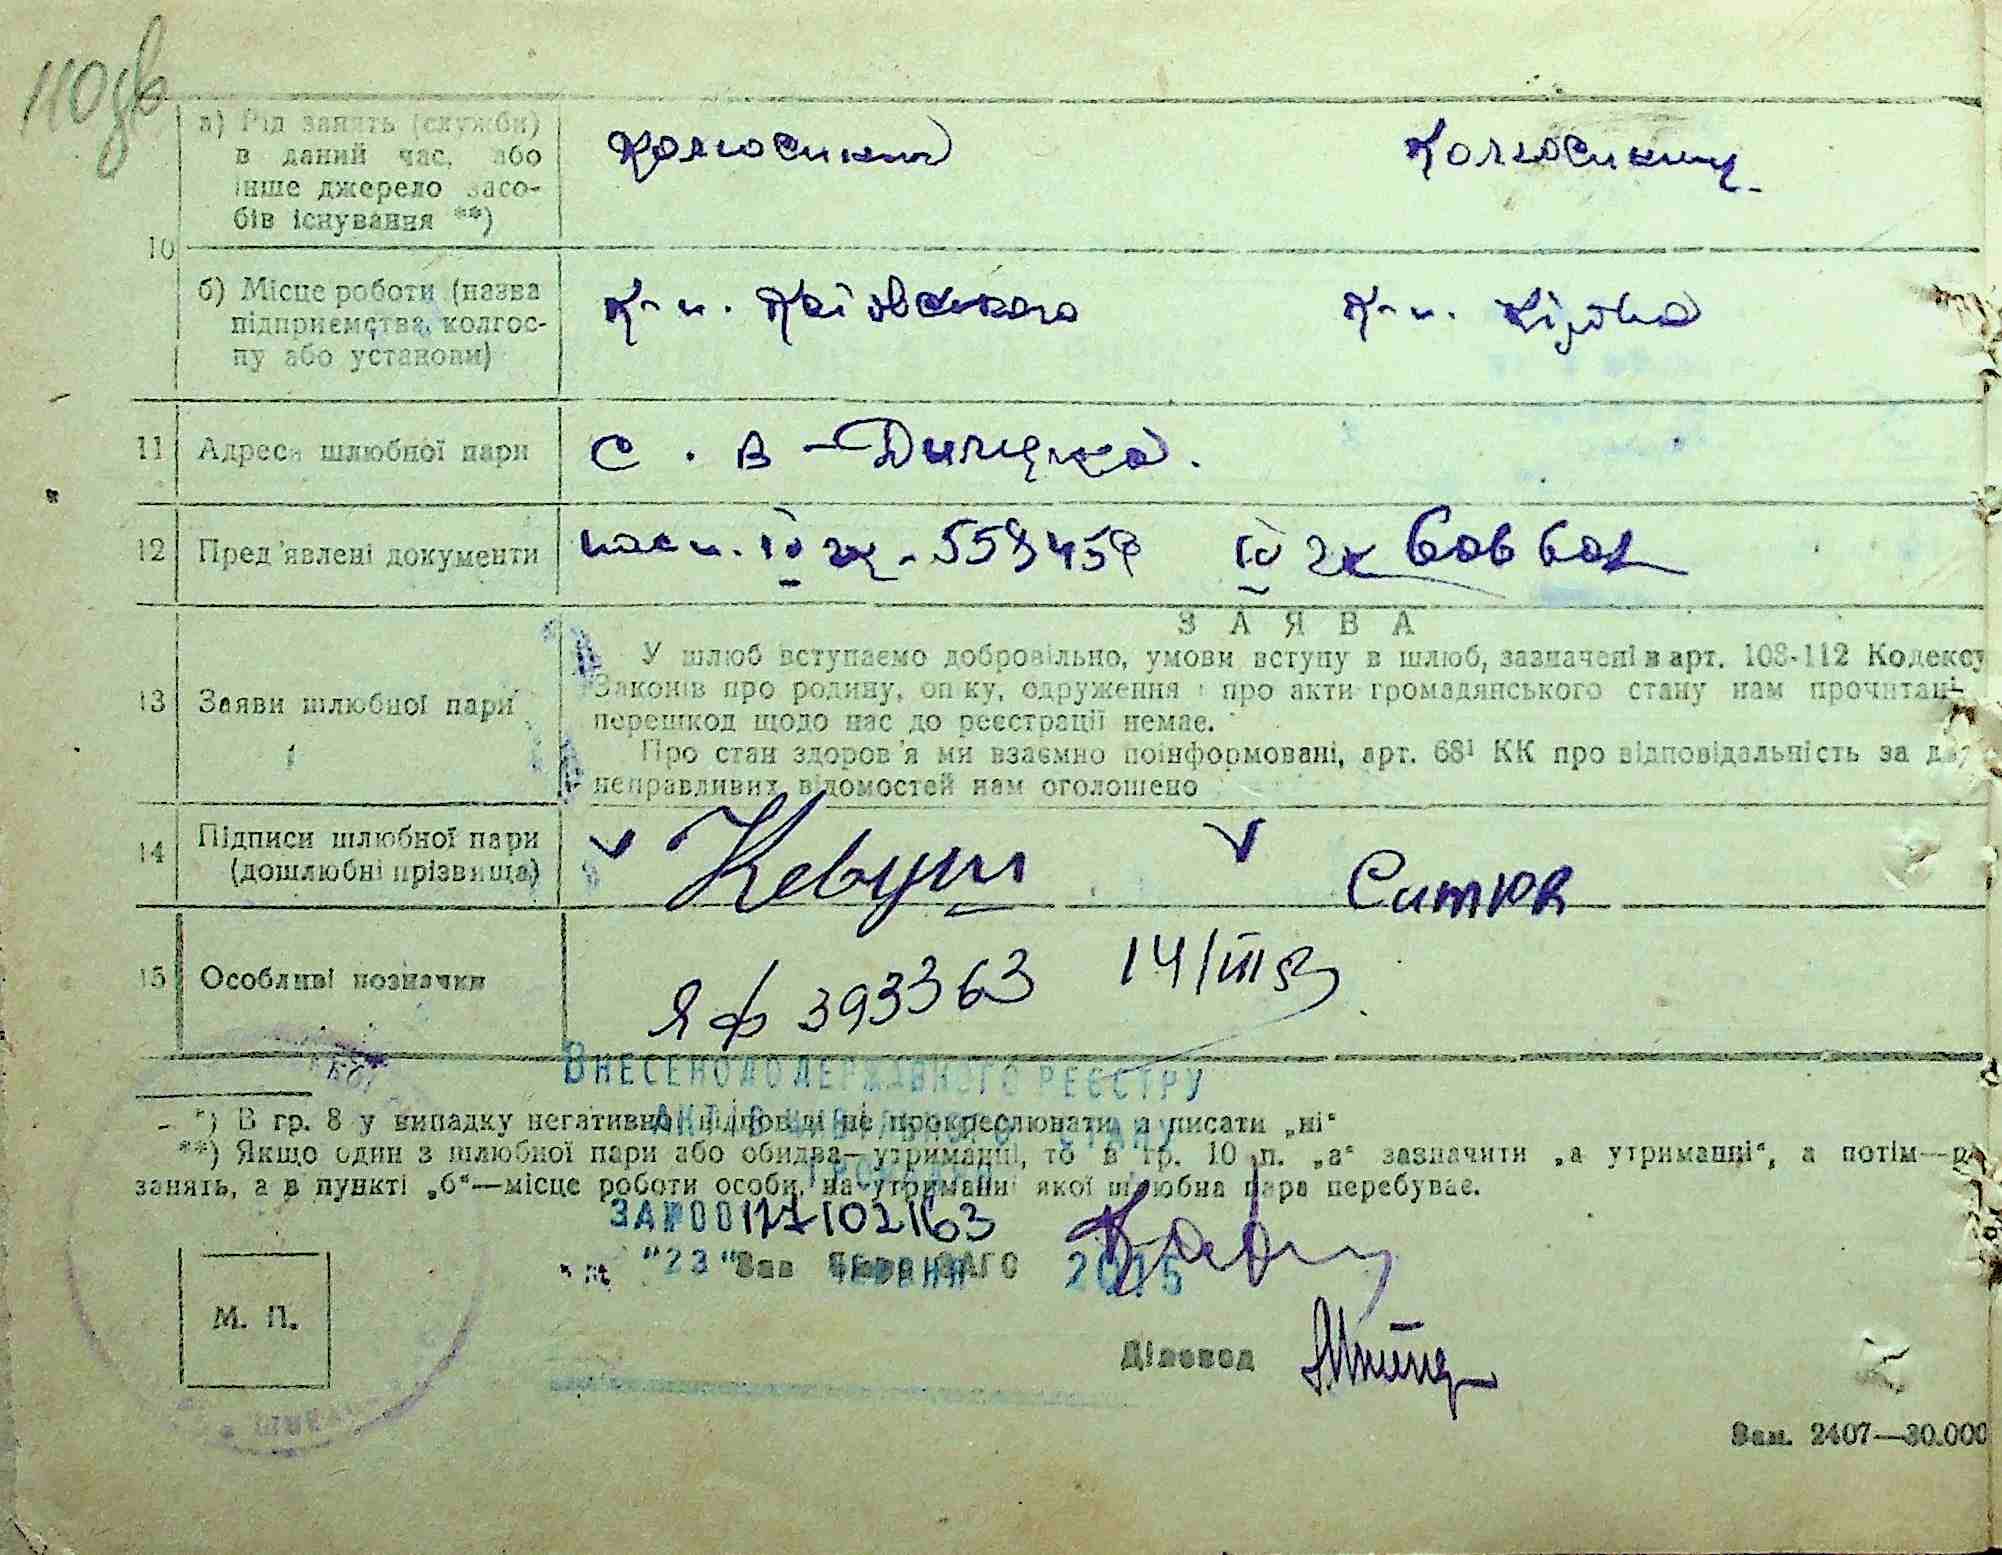 110 зв
10
а) Рід занять (служби)
в даний час, або
інше джерело засо-
бів існування **)
колгоспник
колгоспниц.
б) Місце роботи (назва
підприємства, колгос-
пу або установи)
К-п.
К-п. Кірова
11 Адреса шлюбної пари
с. В-Дилуцка.
12 Пред'явлені документи
пасп. IV
IV
13 Заяви шлюбної пари
ЗАЯВА
У шлюб вступаємо добровільно, умови вступу в шлюб, зазначені в арт. 108-112 Кодексу
Законів про родину, опіку, одруження і про акти громадянського стану нам прочитані,
перешкод щодо нас до реєстрації немає.
Про стан здоров'я ми взаємно поінформовані, арт. 68¹ КК про відповідальність за
неправливих відомостей нам оголошено
14 Підписи шлюбної пари
(дошлюбні прізвища)
Ситюк
15 Особливі позначки
ЯФ 393363 14/III 53
*) В гр. 8 у випадку негативної відповіді не прокреслювати, а писати „ні“
**) Якщо один з шлюбної пари або обидва—утриманці, то в гр. 10 п. „а“ зазначити „а утриманці“, а потім—рід
занять, а в пункті „б“—місце роботи особи, на утриманні якої шлюбна пара перебуває.
ВНЕСЕНО ДО ДЕРЖАВНОГО РЕЄСТРУ
АКТІВ ЦИВІЛЬНОГО СТАНУ
ГРОМАДЯН
ЗА №00177102163
"23" ЧЕРВНЯ 2015
Зав. бюро ЗАГС
М. П.
Діловод
Зам. 2407—30.000